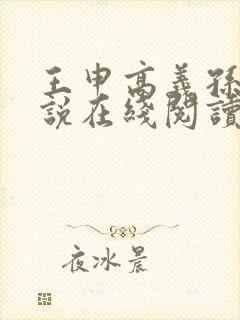 王申高義孫
說在綫閱讀
夜冰晨